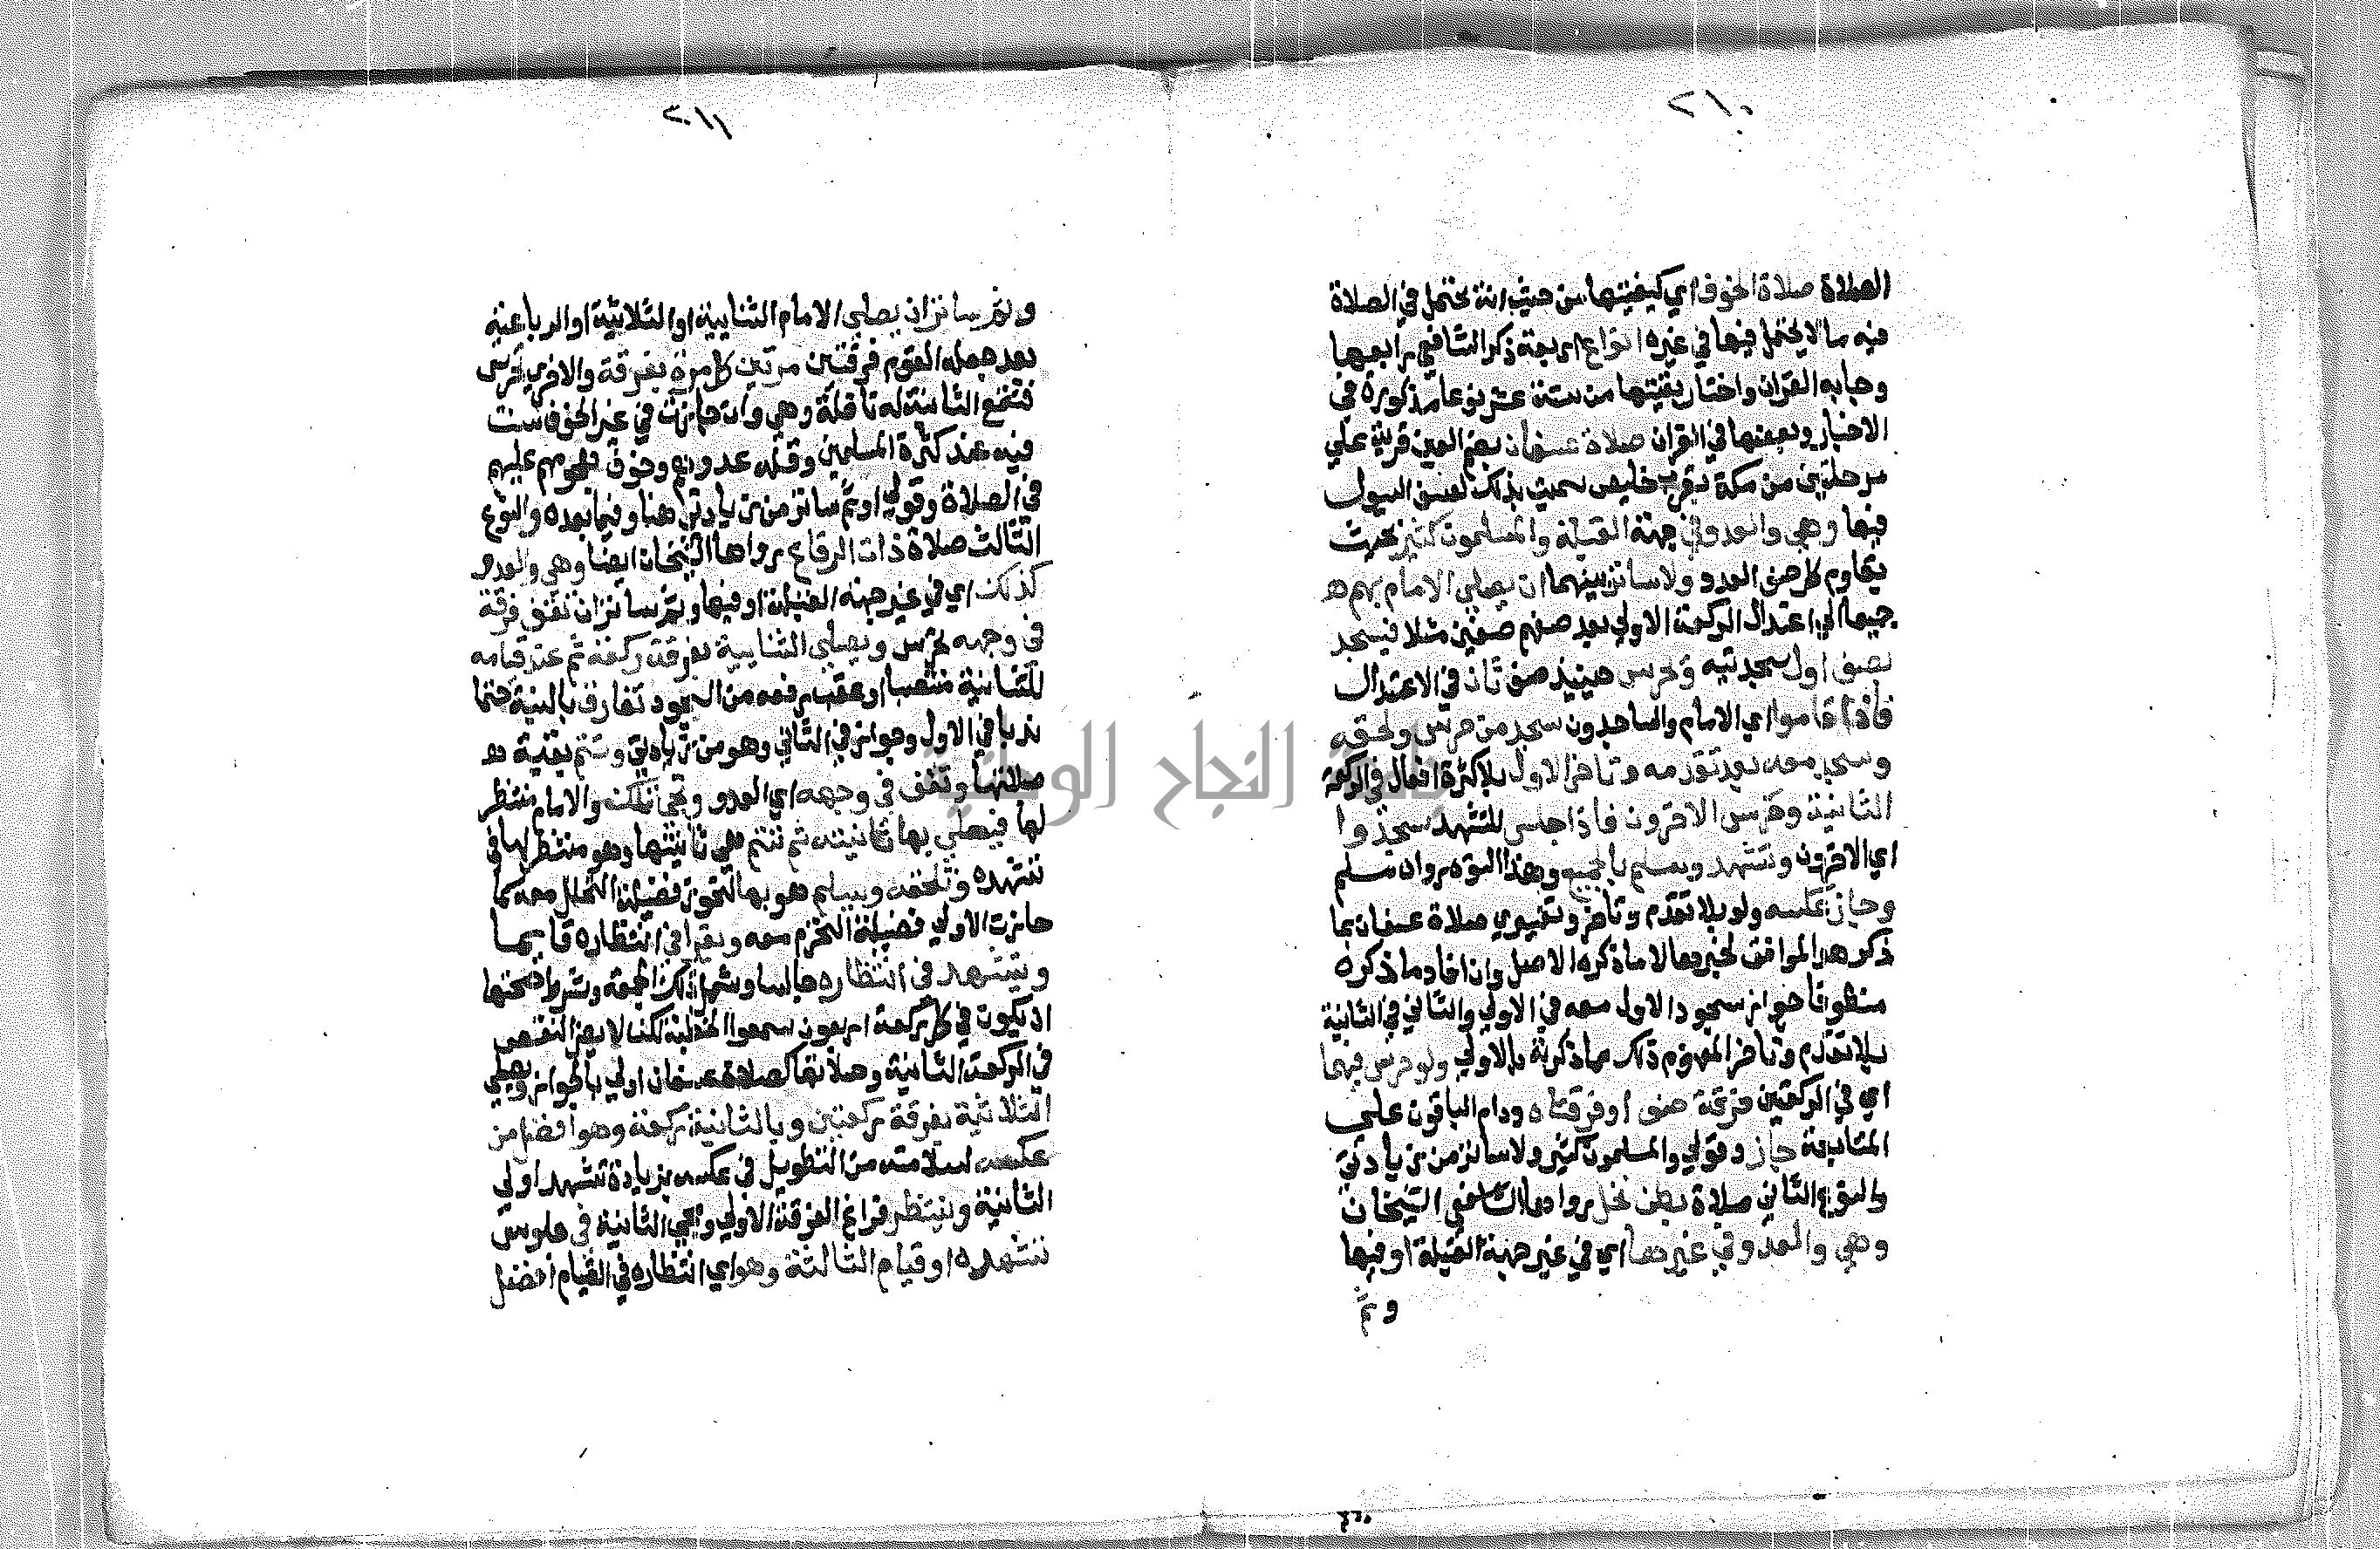 ٢١٠
الصلاة صلاة الخوف اي كيفيتها من حيث انه يحتمل في الصلاة
فيه ما لا يحتمل فيها في غيره انواع اربعة ذكر الشافعي رابعها
وجا به القران واختار بقيتها من ستة عشر نوعا مذكورة في
الاخبار وبعضها في القران صلاة عسفان بضم العين قرية علي
مرحلتين من مكة بقرب خليص سميت بذلك لعسف السيول
فيها وهي والعدو في جهة القبلة والمسلمون كثير بحيث
يقاوم كل صف العدو ولا ساتر بينهما ان يصلي الامام بهم
جميعا الي اعتدال الركعة الاولي بعد صفهم صفين مثلا فيسجد
بصف اول سجدتيه وحرس حينيذ صف ثان في الاعتدال
فاذا قاموا اي الامام والساجدون سجد من حرس ولحقه
وسجد معه بعد تقدمه وتاخر الاول بلا كثرة افعال في الركعة
الثانية وحرس الاخرون فاذا جلس للتشهد سجدوا
اي الاخرون وتشهد وسلم بالجميع وهذا النوع رواه مسلم
وجاز عكسه ولو بلا تقدم وتاخر وتعبيري صلاة عسفان بما
ذكر هو الموافق لخبرها لا ما ذكره الاصل وان افاد ما ذكره
منطوقا جواز سجود الاول معه في الاولي والثاني في الثانية
بلا تقدم وتاخر المفهوم ذلك مما ذكرته بالاولي ولو حرس فيهما
اي في الركعتين فرقة صف او فرقتاه ودام الباقون على
المتابعة جاز وقولي والمسلمون كثير ولا ساتر من زيادتي
والنوع الثاني صلاة بطن نخل رواها الشيخان
وهي والعدو في غيرها اي في غير جهة القبلة او فيها
وثم
٢١١
وثم ساتر ان يصلي الامام الثنايية او الثلاثية او الرباعية
بعد جعله القوم فرقتين مرتين كل مرة بفرقة والاخري تحرس
فتقع الثانية له نافلة وهي وان جازت في غير الخوف سنت
فيه عند كثرة المسلمين وقلة عدوهم وخوف هجومهم عليهم
في الصلاة وقولي او ثم ساتر من زيادتي هنا وفيما بعده والنوع
الثالث صلاة ذات الرقاع رواها الشيخان ايضا وهي والعدو
كذلك اي في غير جهة القبلة او فيها وثم ساتر ان تقف فرقة
في وجهه تحرس ويصلي الثنايية بفرقة ركعة ثم عند قيامه
للثانية منتصبا او عقب رفعه من السجود تفارق بالنية حتما
ندبا في الاول وجوازا في الثاني وهو من زيادتي وتتم بقية
صلاتها وتقف في وجهه اي العدو وتجي تلك والامام منتظر
لها فيصلي بها ثانيته ثم تتم هي ثانيتها وهو منتظر لها في
تشهده وتلحقه ويسلم هو بها لتحوز فضيلة التحلل معه كما
حازت الاولي فضيلة التحرم معه ويقرا في انتظاره قايما
ويتشهد في انتظاره جالسا وشمل ذلك الجمعة وشرط صحتها
ان يكون في كل ركعة اربعون سمعوا الخطبة لكن لا يضر النقص
في الركعة الثانية وصلاتها كصلاة عسفان اولي بالجواز ويصلي
الثلاثية بفرقة ركعتين وبالثانية ركعة وهو افضل من
عكسه لسلامته من التطويل في عكسه بزيادة تشهد اولي
الثانية وينتظر فراغ الفرقة الاولي ومجي الثانية في جلوس
تشهده او قيام الثالثة وهو اي انتظاره في القيام افضل
جامعة النجاح الوطنية